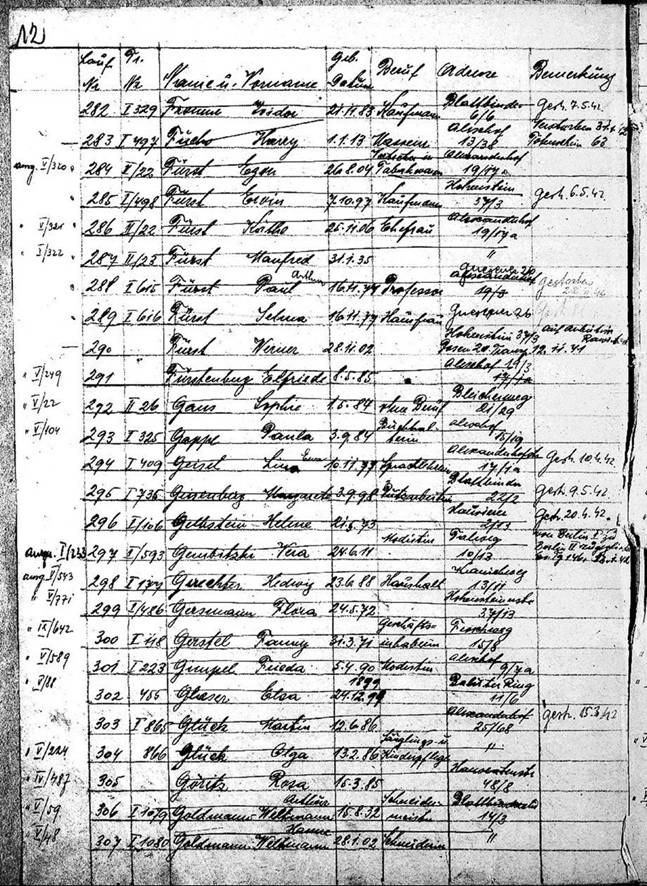 12
Lauf Nr Tr. Nr Name u. Vorname geb. Datum Beruf Adresse Bemerkung
282 I 329 Fromm Isidor 21.11.83 Kaufmann Blattbinder 6/6 gest. 7.5.42.
283 I 497 Fuchs Harry 1.1.13 Masseur Alexhof 13/38
ang. V/320 284 II/22 Fürst Egon 26.8.04 Alexanderhof 19/17a
285 I/498 Fürst Erwin 7.10.97 Kaufmann Hohenstein 37/3 gest. 6.5.42
" V/321 286 II/22 Fürst Käthe 25.11.06 Ehefrau Alexanderhof 19/17a
" V/322 287 II/23 Fürst Manfred 31.1.35 "
288 I 615 Fürst Paul Arthur 16.11.77 Professor Gnesener 26 gestorben
289 I 616 Fürst Selma 16.11.77 Hausfrau Gnesener 26
290 Fürst Werner 28.11.02 Hohenstein 37/3 12.11.41
" V/249 291 Fürstenberg Elfriede 8.5.85 Alexhof 19/3
" V/22 292 II 26 Gans Sophie 1.5.84 ohne Beruf Bleicherweg 21/29
" V/104 293 I 325 Gappe Paula 3.9.84 Alexhof 15/19
294 I 409 Geisel Lina Ema 10.11.77 Sprachlehrerin Alexanderhof 17/1a Gest. 10.4.42.
295 I 735 Geisenberg Margarete 3.9.98 Putzarbeiterin Blattbinder 22/2 gest. 9.5.42.
296 I/106 Gethstein Helene 21.5.73 2/13 Gest. 20.4.42.
ang. I/233 297 II/593 Gembitzki Vera 24.6.11 Modistin 10/13
ang. V/543 298 I 177 Gerechter Hedwig 23.6.88 Haushalt 13/11
" V/771 299 I/486 Gersmann Flora 24.5.72 Hohensteinerstr 37/13
" IV/642 300 I 118 Gerstel Fanny 31.3.71 Geschäfts-inhaberin Fischweg 15/8
" V/589 301 I 223 Gimpel Frieda 5.4.90 Modistin Alexhof 9/7a
" V/88 302 455 Glaeser Elsa 24.12.99 1899 Balüter Ring 11/6
303 I 865 Glück Martin 12.6.86 Alexanderhof 25/68 gest. 15.3.42
" V/224 304 866 Glück Olga 13.2.86 Säuglings- u. Kinderpflege "
" IV/487 305 Göritz Rosa 15.3.85 Hanseatenstr 48/8
" V/59 306 I 1079 Goldmann Weltmann Arthur 15.8.32 Schneider-meister Blattbinder 14/3
" V/48 307 I 1080 Goldmann Weltmann Hanne 28.1.02 Schneiderin "